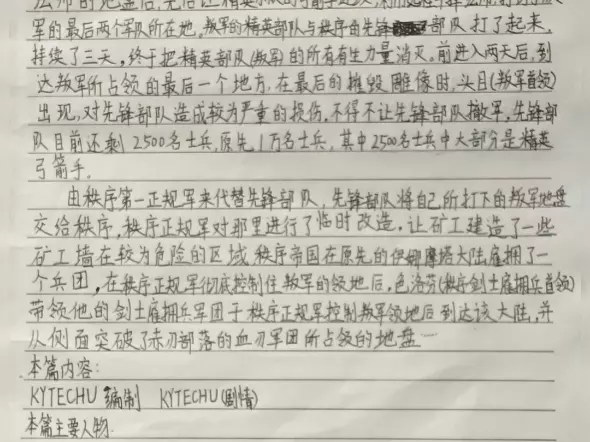 法师的地盘后,先后让精英
军的最后两个军队所在地,叛军的精英部队与秩序的先锋部队打了起来,
持续了三天,终于把精英部队(叛军)的所有有生力量消灭。前进入两天后,到
达叛军所占领的最后一个地方,在最后的摧毁雕像时,头目(叛军首领)
出现,对先锋部队造成较为严重的损伤,不得不让先锋部队撤军,先锋部
队目前还剩2500名士兵,原先1万名士兵,其中2500名士兵中大部分是精英
弓箭手。
由秩序第一正规军来代替先锋部队,先锋部队将自己所打下的叛军地盘
交给秩序,秩序正规军对那里进行了临时改造,让矿工建造了一些
矿工墙在较为危险的区域,秩序帝国在原先的伊娜摩塔大陆雇拥了一
个兵团,在秩序正规军彻底控制住叛军的领地后,色洛芬(秩序剑士雇拥兵首领)
带领他的剑士雇拥兵军团于秩序正规军控制叛军领地后到达该大陆,并
从侧面突破了赤刃部落的血刃军团所占领的地盘一
本篇内容:
KYTECHU编制 KYTECHU(剧情)
本篇主要人物.